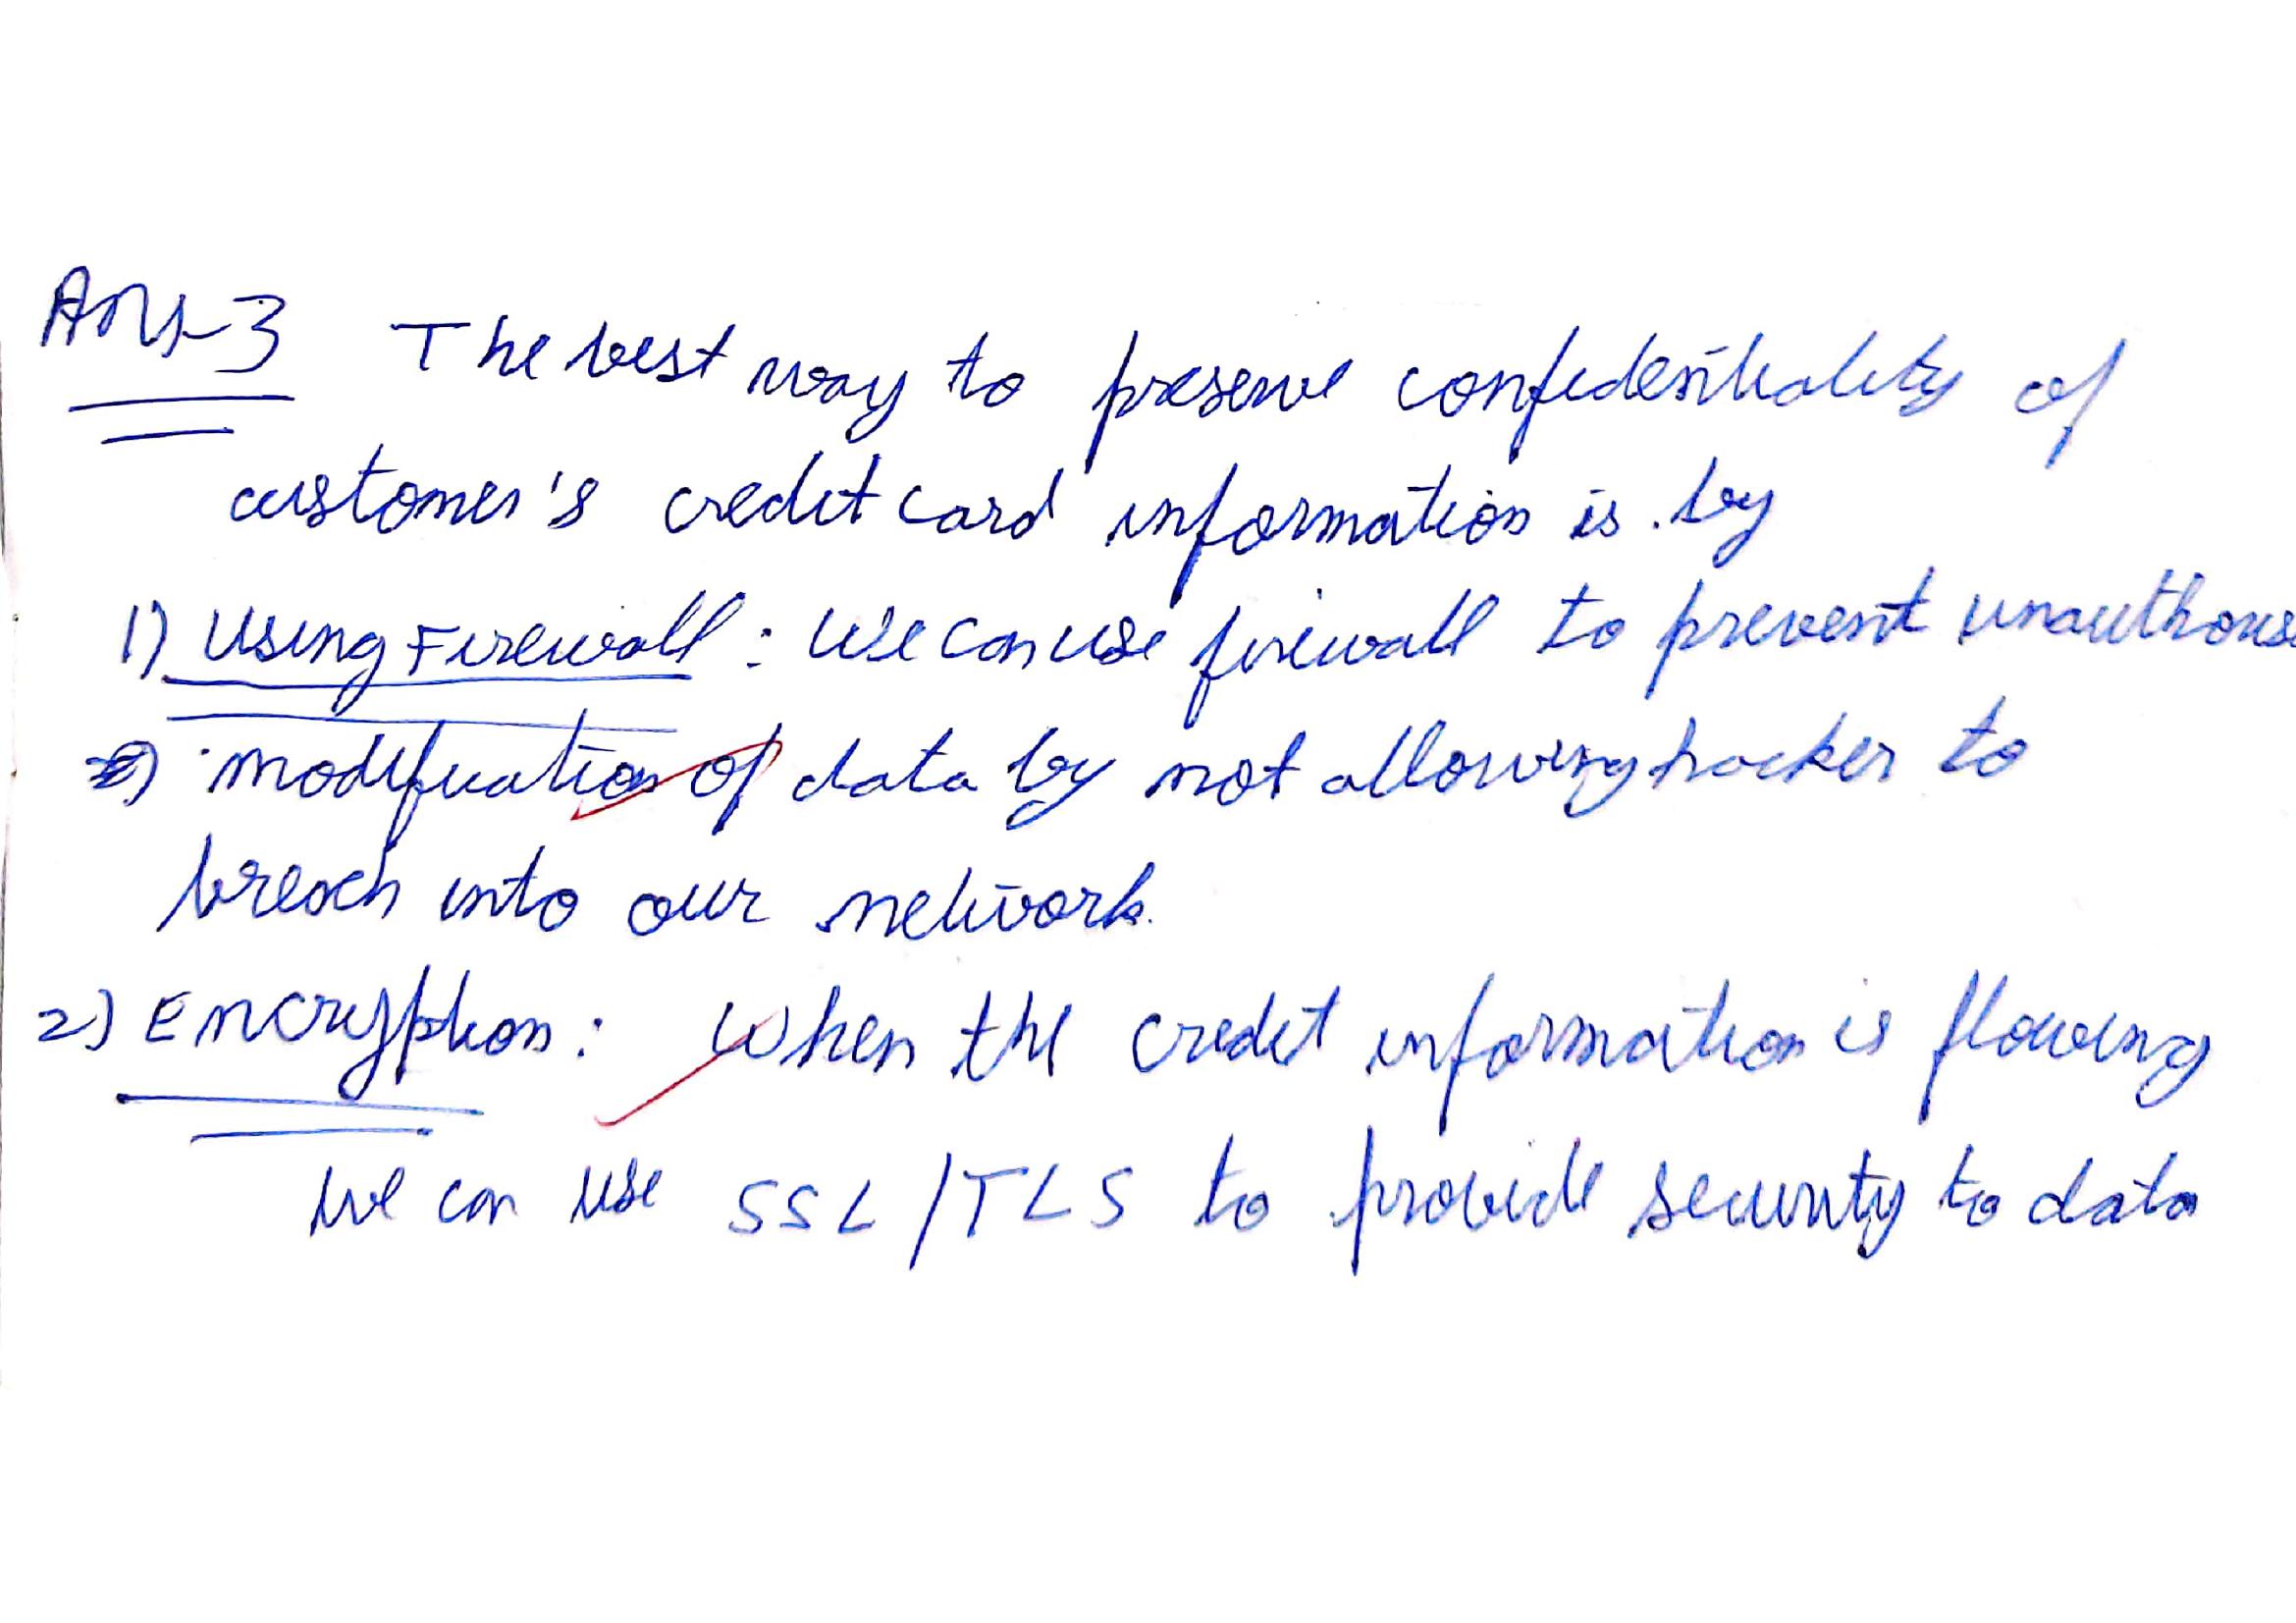 Ans-3 The best way to preserve confidentiality of
customer's credit card information is by
1) Using Firewall : We can use firewall to prevent unauthorise
modification of data by not allowing hacker to
breach into our network.
2) Encryption : When the credit information is flowing
we can use SSL/TLS to provide security to data